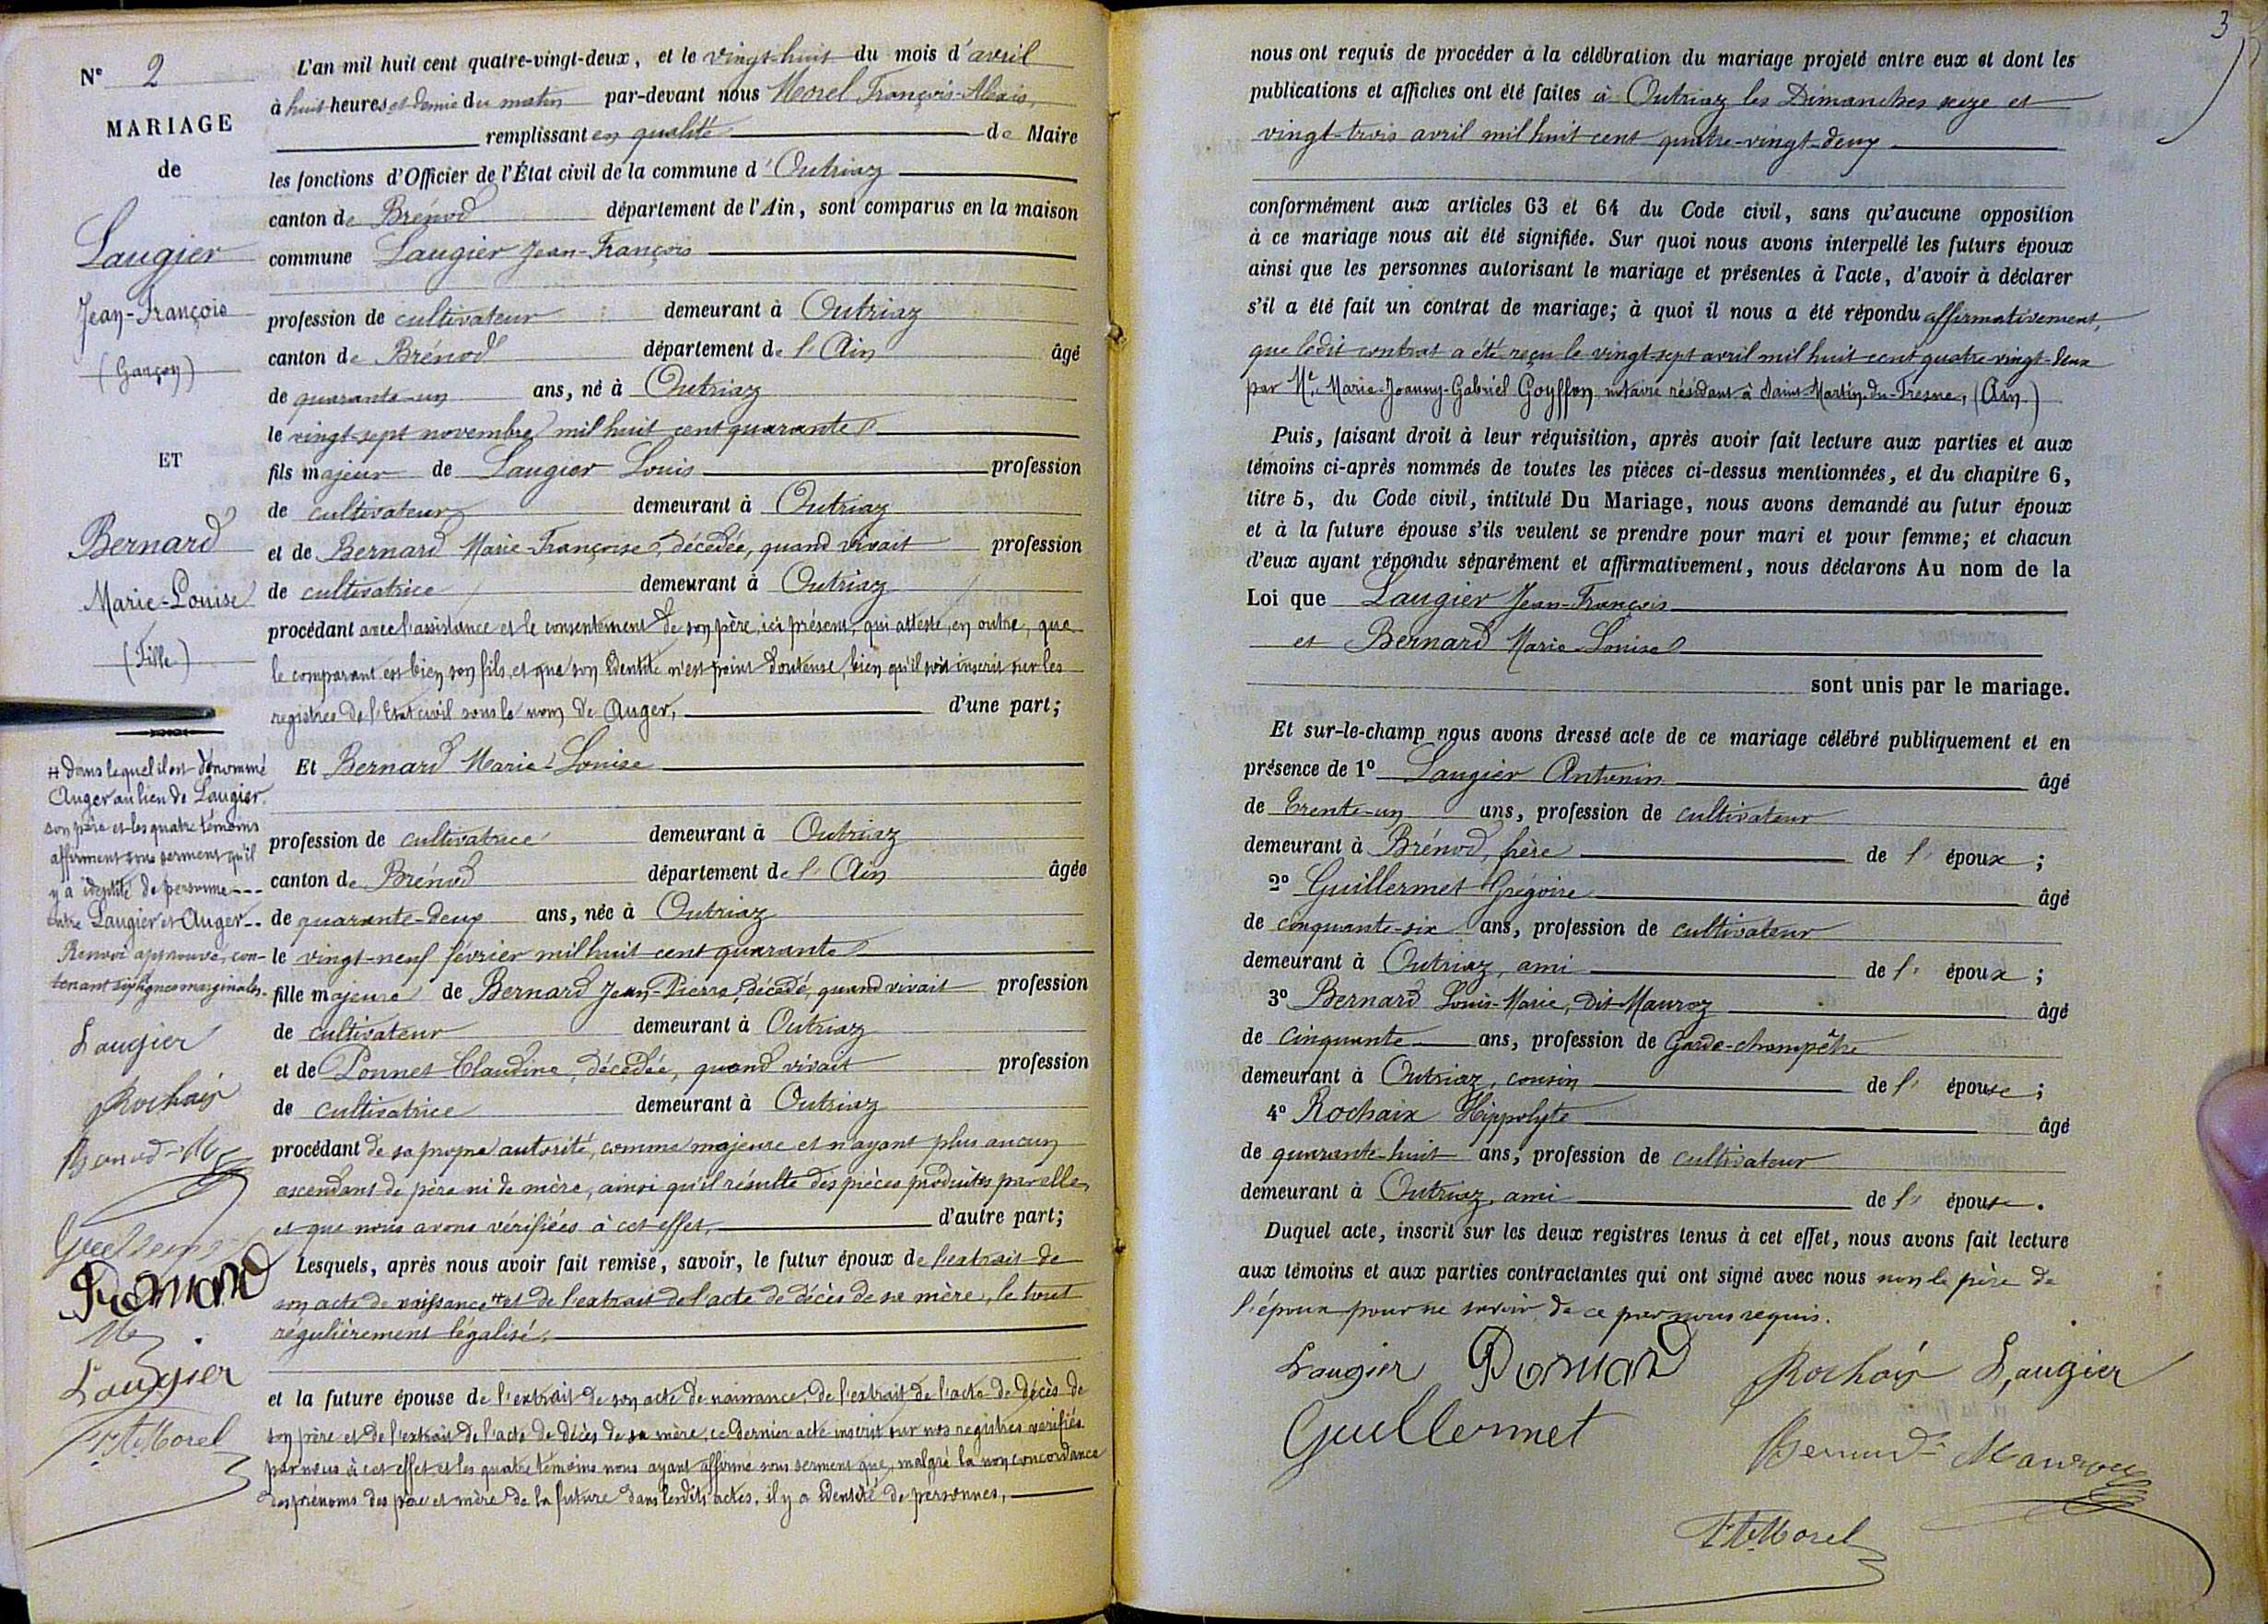 N° 2
MARIAGE
de
Laugier
Jean-François
(Garçon)
ET
Bernard
Marie-Louise
(Fille)
# dans lequel il est dénommé
Auger au lieu de Laugier.
son père et les quatre témoins
affirment sous serment qu'il
y a identité de personne ---
entre Laugier et Auger --
Renvoi approuvé, con-
tenant six lignes marginales.
Laugier
Rochaix
Bernard-M
Guillermet
Bernard
Laugier
F. A. Morel
L'an mil huit cent quatre-vingt-deux, et le vingt-huit du mois d'avril
à huit heures et demie du matin par-devant nous Morel François-Alexis,
remplissant en qualité de Maire
les fonctions d'Officier de l'État civil de la commune d'Outriaz
canton de Brénod département de l'Ain, sont comparus en la maison
commune Laugier Jean-François
profession de cultivateur demeurant à Outriaz
canton de Brénod département de l'Ain âgé
de quarante-un ans, né à Outriaz
le vingt-sept novembre mil huit cent quarante
fils majeur de Laugier Louis profession
de cultivateur demeurant à Outriaz
et de Bernard Marie-Françoise, décédée, quand vivait profession
de cultivatrice demeurant à Outriaz
procédant avec l'assistance et le consentement de son père, ici présent, qui atteste, en outre, que
le comparant est bien son fils, et que son identité n'est point douteuse, bien qu'il soit inscrit sur les
registres de l'Etat civil sous le nom de Auger, d'une part;
Et Bernard Marie-Louise
profession de cultivatrice demeurant à Outriaz
canton de Brénod département de l'Ain âgée
de quarante-deux ans, née à Outriaz
le vingt-neuf février mil huit cent quarante
fille majeure de Bernard Jean-Pierre, décédé, quand vivait profession
de cultivateur demeurant à Outriaz
et de Ponnet Claudine, décédée, quand vivait profession
de cultivatrice demeurant à Outriaz
procédant de sa propre autorité, comme majeure et n'ayant plus aucun
ascendant de père ni de mère, ainsi qu'il résulte des pièces produites par elle,
et que nous avons vérifiées à cet effet, d'autre part;
Lesquels, après nous avoir fait remise, savoir, le futur époux de l'extrait de
son acte de naissance # et de l'extrait de l'acte de décès de sa mère, le tout
régulièrement légalisé;
et la future épouse de l'extrait de son acte de naissance, de l'extrait de l'acte de décès de
son père et de l'extrait de l'acte de décès de sa mère, ce dernier acte inscrit sur nos registres vérifiés
par nous à cet effet et les quatre témoins nous ayant affirmé sous serment que, malgré la non concordance
des prénoms des père et mère de la future dans lesdits actes, il y a identité de personnes,
3
nous ont requis de procéder à la célébration du mariage projeté entre eux et dont les
publications et affiches ont été faites à Outriaz les Dimanches seize et
vingt-trois avril mil huit cent quatre-vingt-deux
conformément aux articles 63 et 64 du Code civil, sans qu'aucune opposition
à ce mariage nous ait été signifiée. Sur quoi nous avons interpellé les futurs époux
ainsi que les personnes autorisant le mariage et présentes à l'acte, d'avoir à déclarer
s'il a été fait un contrat de mariage; à quoi il nous a été répondu affirmativement,
que ledit contrat a été reçu le vingt-sept avril mil huit cent quatre-vingt-deux
par Me. Marie-Joanny-Gabriel Goyffon notaire résidant à Saint-Martin-du-Fresne, (Ain)
Puis, faisant droit à leur réquisition, après avoir fait lecture aux parties et aux
témoins ci-après nommés de toutes les pièces ci-dessus mentionnées, et du chapitre 6,
titre 5, du Code civil, intitulé Du Mariage, nous avons demandé au futur époux
et à la future épouse s'ils veulent se prendre pour mari et pour femme; et chacun
d'eux ayant répondu séparément et affirmativement, nous déclarons Au nom de la
Loi que Laugier Jean-François
et Bernard Marie-Louise
sont unis par le mariage.
Et sur-le-champ nous avons dressé acte de ce mariage célébré publiquement et en
présence de 1° Laugier Antonin âgé
de trente-un ans, profession de cultivateur
demeurant à Brénod, frère de l' époux ;
2° Guillermet Grégoire âgé
de cinquante-six ans, profession de cultivateur
demeurant à Outriaz, ami de l' époux ;
3° Bernard Louis-Marie, dit Mauroz âgé
de cinquante ans, profession de Garde-champêtre
demeurant à Outriaz, cousin de l' épouse ;
4° Rochaix Hippolyte âgé
de quarante-huit ans, profession de cultivateur
demeurant à Outriaz, ami de l' épouse.
Duquel acte, inscrit sur les deux registres tenus à cet effet, nous avons fait lecture
aux témoins et aux parties contractantes qui ont signé avec nous non le père de
l'époux pour ne savoir de ce par nous requis.
Laugier Bernard Rochaix Laugier
Guillermet Bernard Mauroz
F. A. Morel